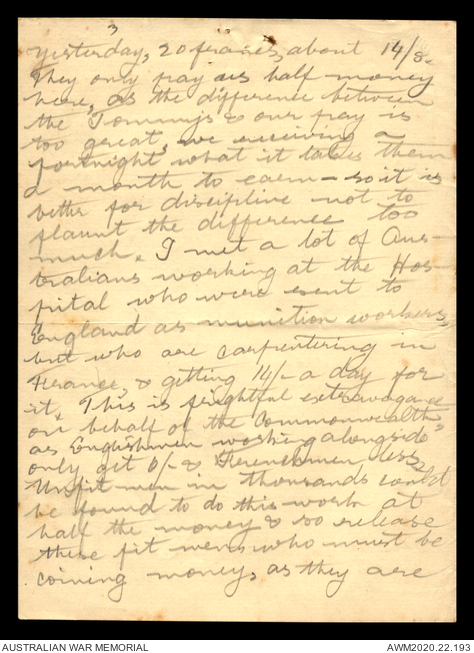 3
Yesterday, 20 francs, about 14/8.
They only pay us half money
here, as the difference between
the Tommys & our pay is
too great, we receiving a
fortnight what it takes them
a month to earn - so it is
better for discipline not to
flaunt the difference too
much. I met a lot of Aus-
tralians working at the Hos-
pital who were sent to
England as munition workers,
but who are carpentering in
France, & getting 14/- a day for
it. This is frightful extravagance
on behalf of the Commonwealth
as Englishmen working alongside
only get 6/- & Frenchmen less,
Unfit men in thousands could
be found to do this work at
half the money & so release
these fit mens who must be
coining money, as they are
AUSTRALIAN WAR MEMORIAL
AWM2020.22.193